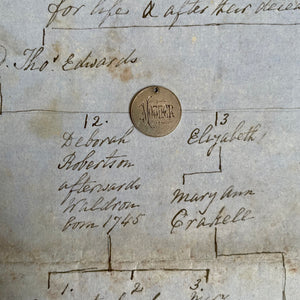 for life & after their decea
D. Thos. Edwards
MOTHER
12.
Deborah
Robertson
afterwards
Waldron
born 1745
13
Elizabeth
Mary Ann
Crakell
1. 2 3.